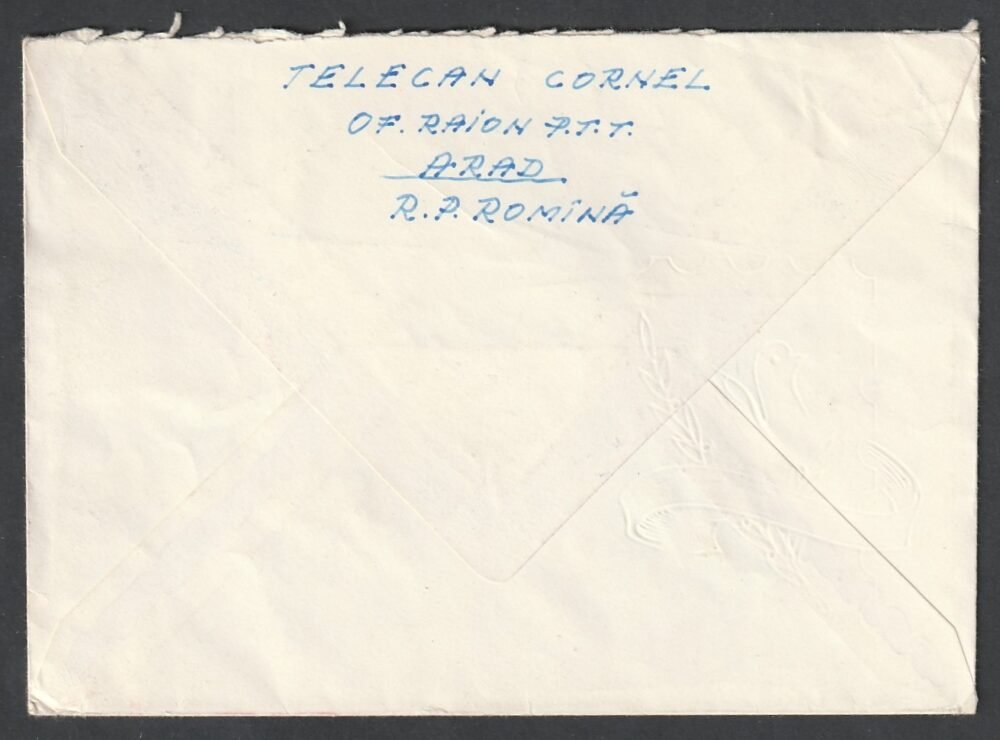 TELECAN CORNEL
OF. RAION P.T.T.
ARAD
R.P. ROMÎNĂ